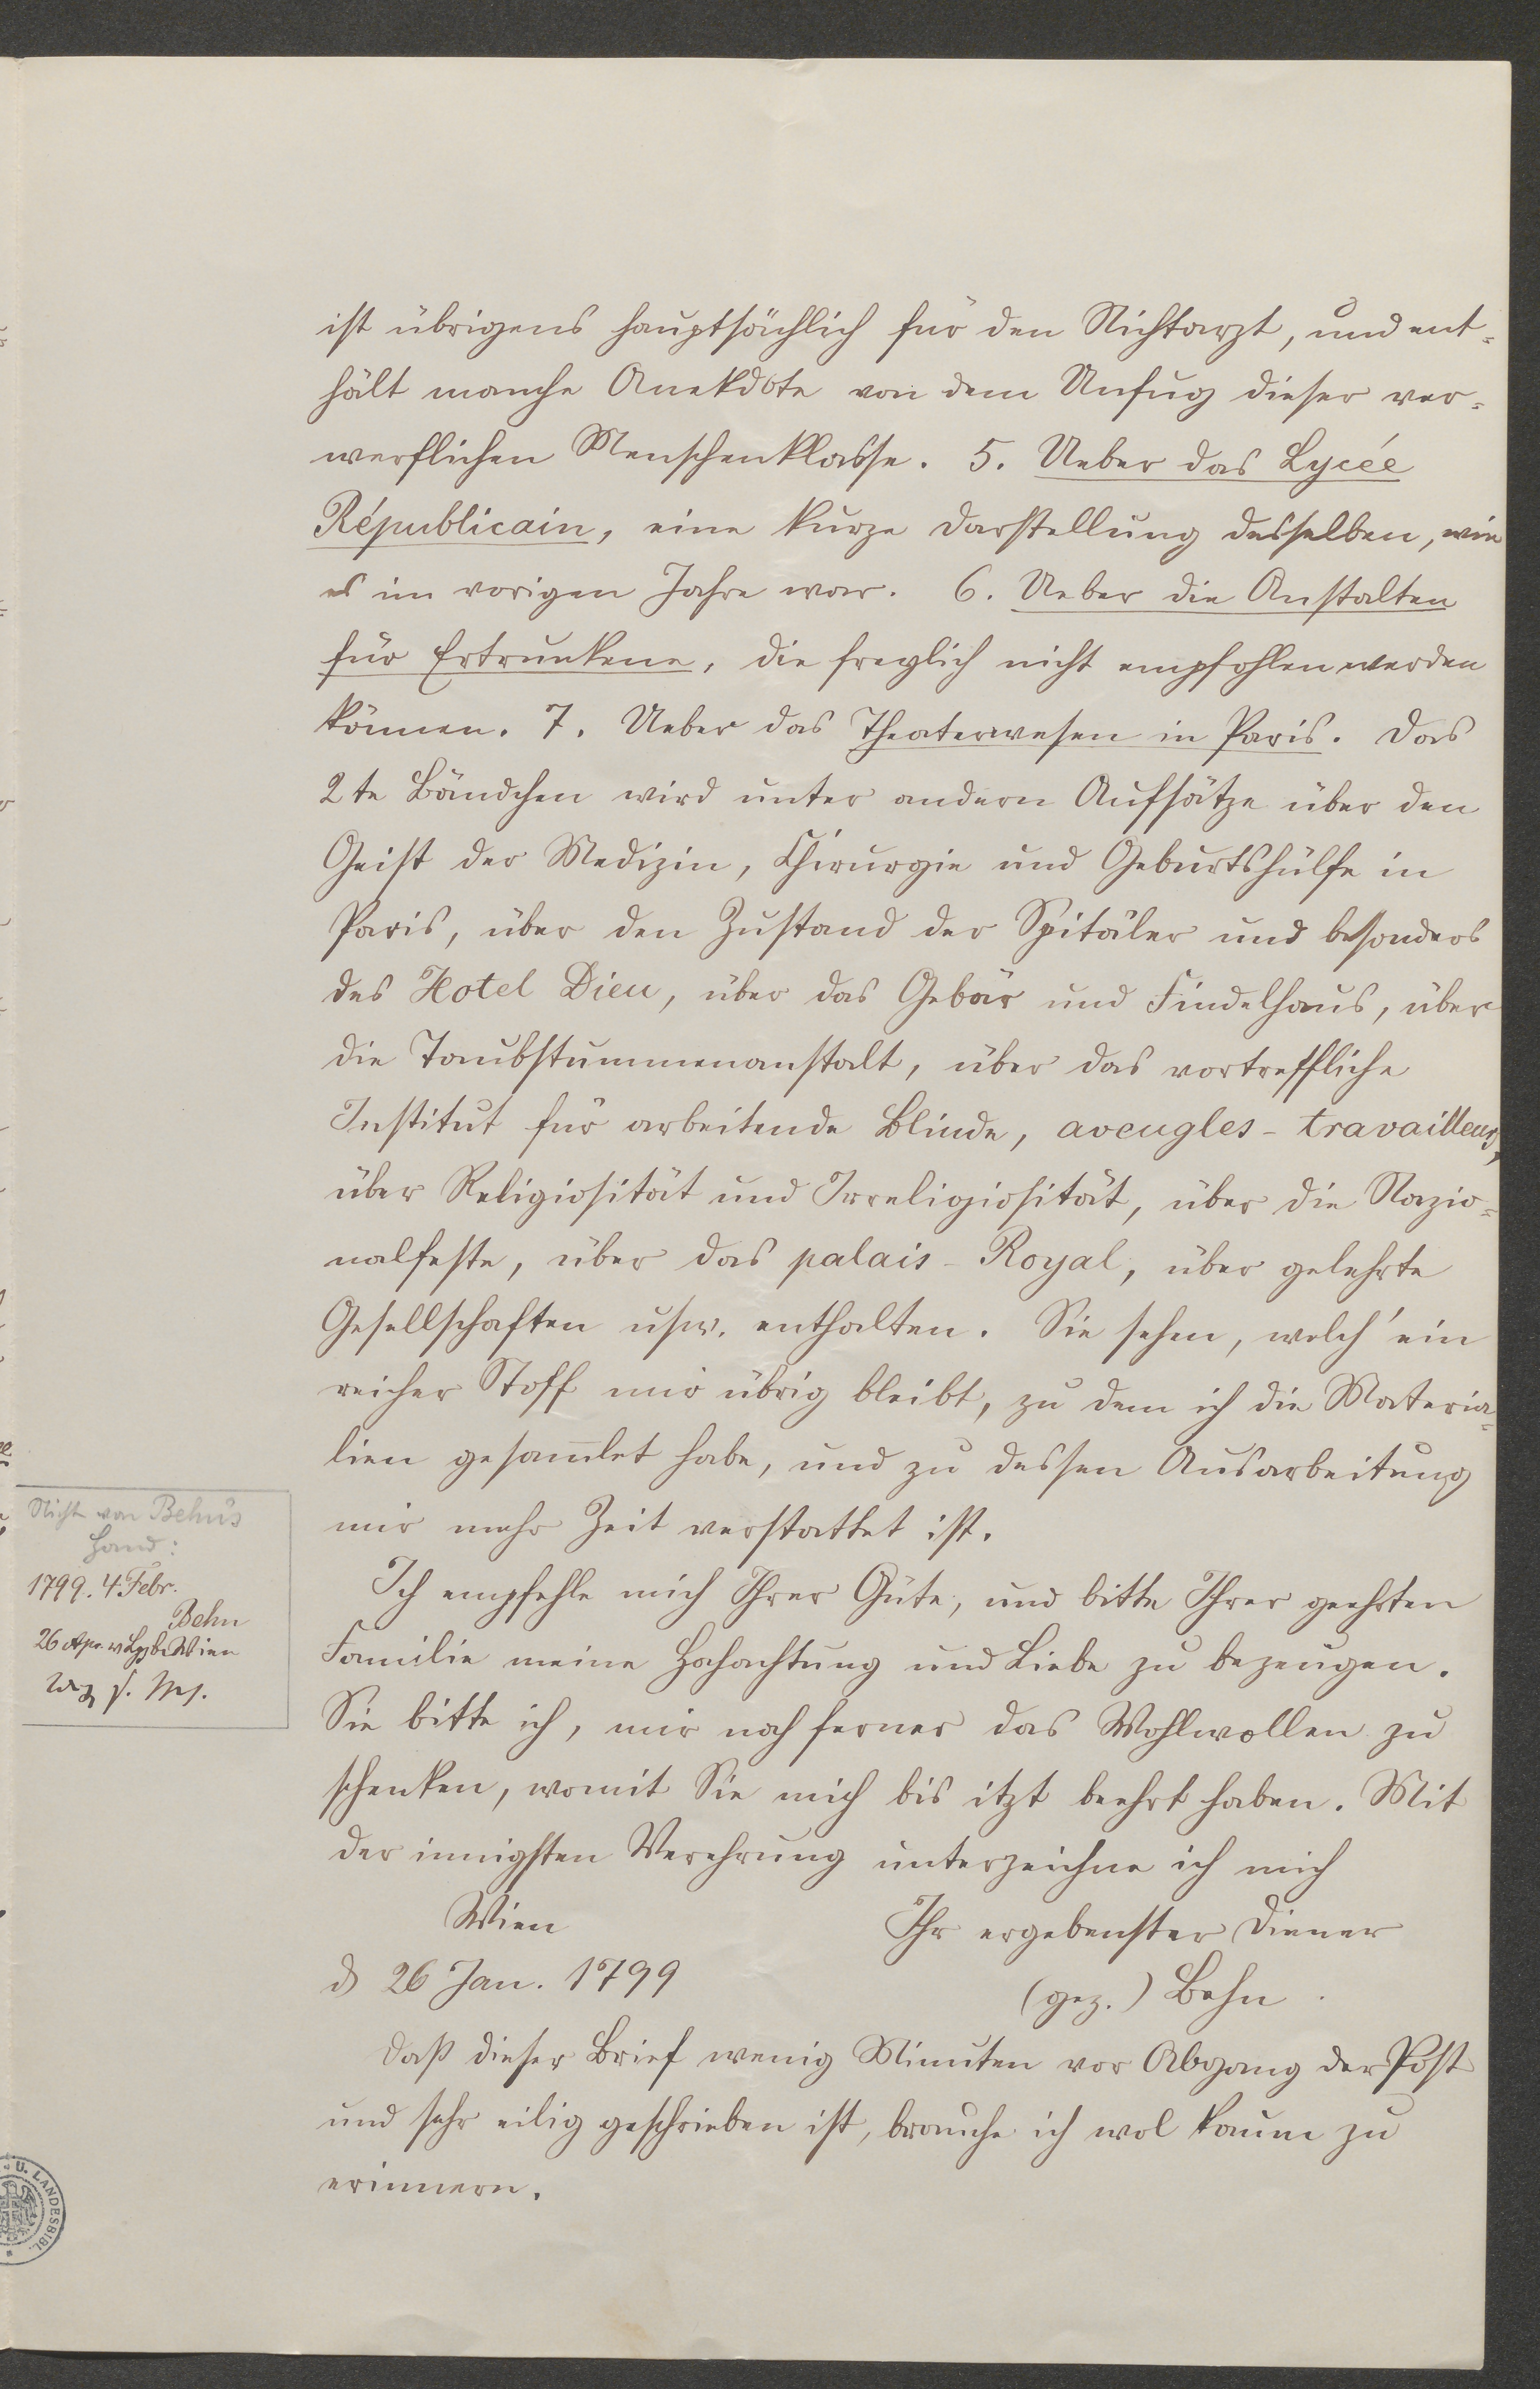 ist übrigens hauptsächlich für den Nichtarzt, und ent-
hält manche Anekdote von dem Unfug dieser ver-
werflichen Menschenklasse. 5. Ueber das Lycée
Républicain, eine kurze Darstellung desselben, wie
es im vorigen Jahre war. 6. Ueber die Anstalten
für Ertrunkene, die freylich nicht empfohlen werden
können. 7. Ueber das Theaterwesen in Paris. Das
2te Bändchen wird unter andern Aufsätze über den
Geist der Medizin, Chirurgie und Geburtshülfe in
Paris, über den Zustand der Spitäler und besonders
des Hotel Dieu, über das Gebär und Findelhaus, über
die Taubstummenanstalt, über das vortreffliche
Institut für arbeitende Blinde, aveugles-travailleurs,
über Religiosität und Irreligiosität, über die Nazio-
nalfeste, über das palais-Royal, über gelehrte
Gesellschaften usw. enthalten. Sie sehen, welch' ein
reicher Stoff mir übrig bleibt, zu dem ich die Materia-
lien gesam̄let habe, und zu dessen Ausarbeitung
mir mehr Zeit verstattet ist.
Ich empfehle mich Ihrer Güte, und bitte Ihrer geehrten
Familie meine Hochachtung und Liebe zu bezeugen.
Sie bitte ich, mir noch ferner das Wohlwollen zu
schenken, womit Sie mich bis itzt beehrt haben. Mit
der innigsten Verehrung unterzeichne ich mich
Wien Ihr ergebenster Diener
d 26 Jan. 1799 (gez.) Behn.
Daß dieser Brief wenig Minuten vor Abgang der Post
und sehr eilig geschrieben ist, brauche ich wol kaum zu
erinnern.
Nicht von Behn's
Hand:
1799. 4. Febr.
Behn
26 Wien
U. LANDESBIBL.